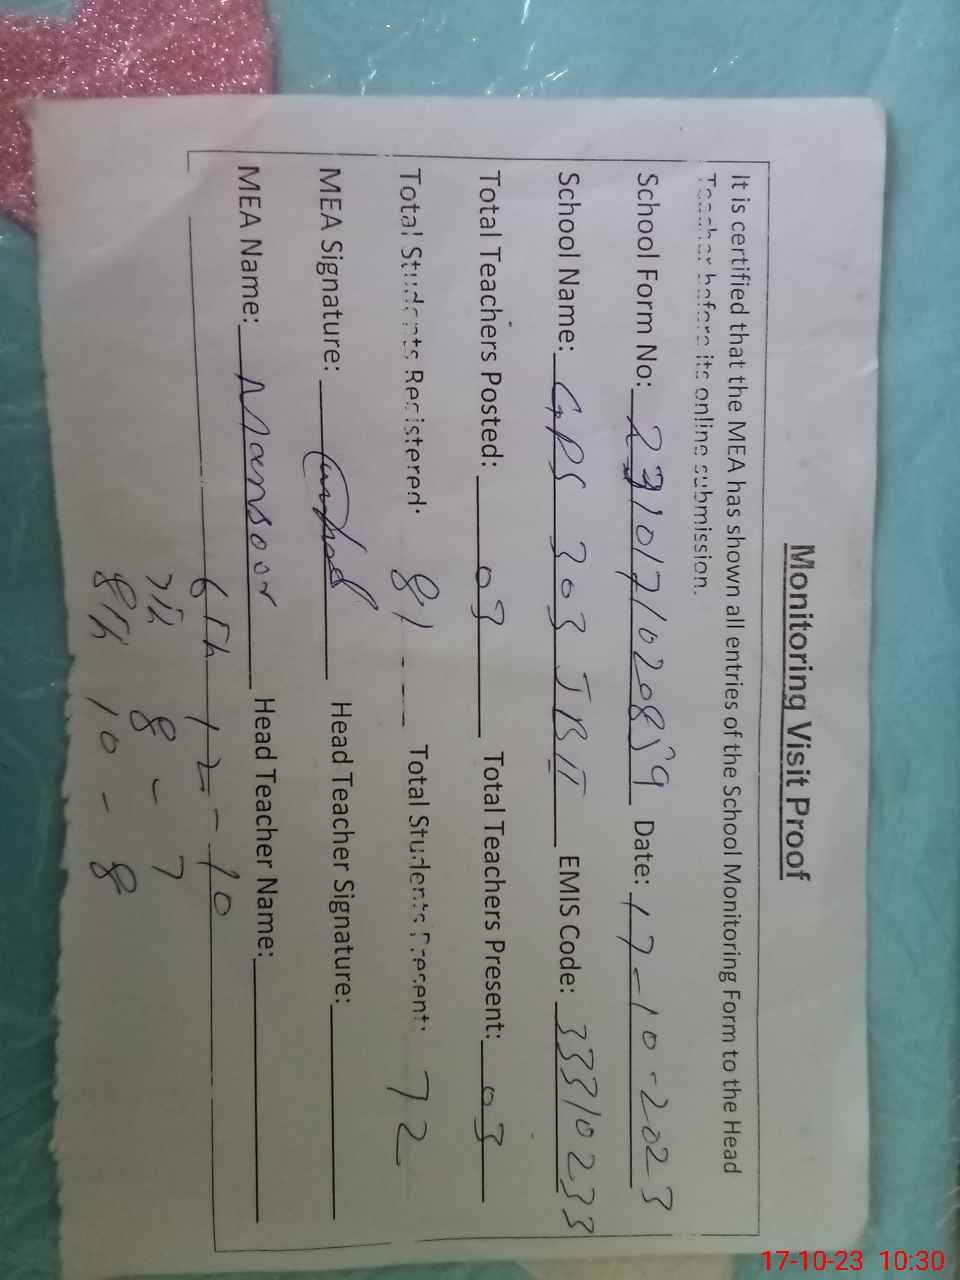 Monitoring Visit Proof
It is certified that the MEA has shown all entries of the School Monitoring Form to the Head
Teacher before its online submission.
School Form No: Date: 17-10-2023
School Name: GPS 303 JB II EMIS Code: 33310233
Total Teachers Posted: 03 Total Teachers Present: 03
Total Students Registered: 81 Total Students Present: 72
MEA Signature: Head Teacher Signature:
MEA Name: Mansoor Head Teacher Name:
6th 12 - 10
7th 8 - 7
8th 10 - 8
17-10-23 10:30